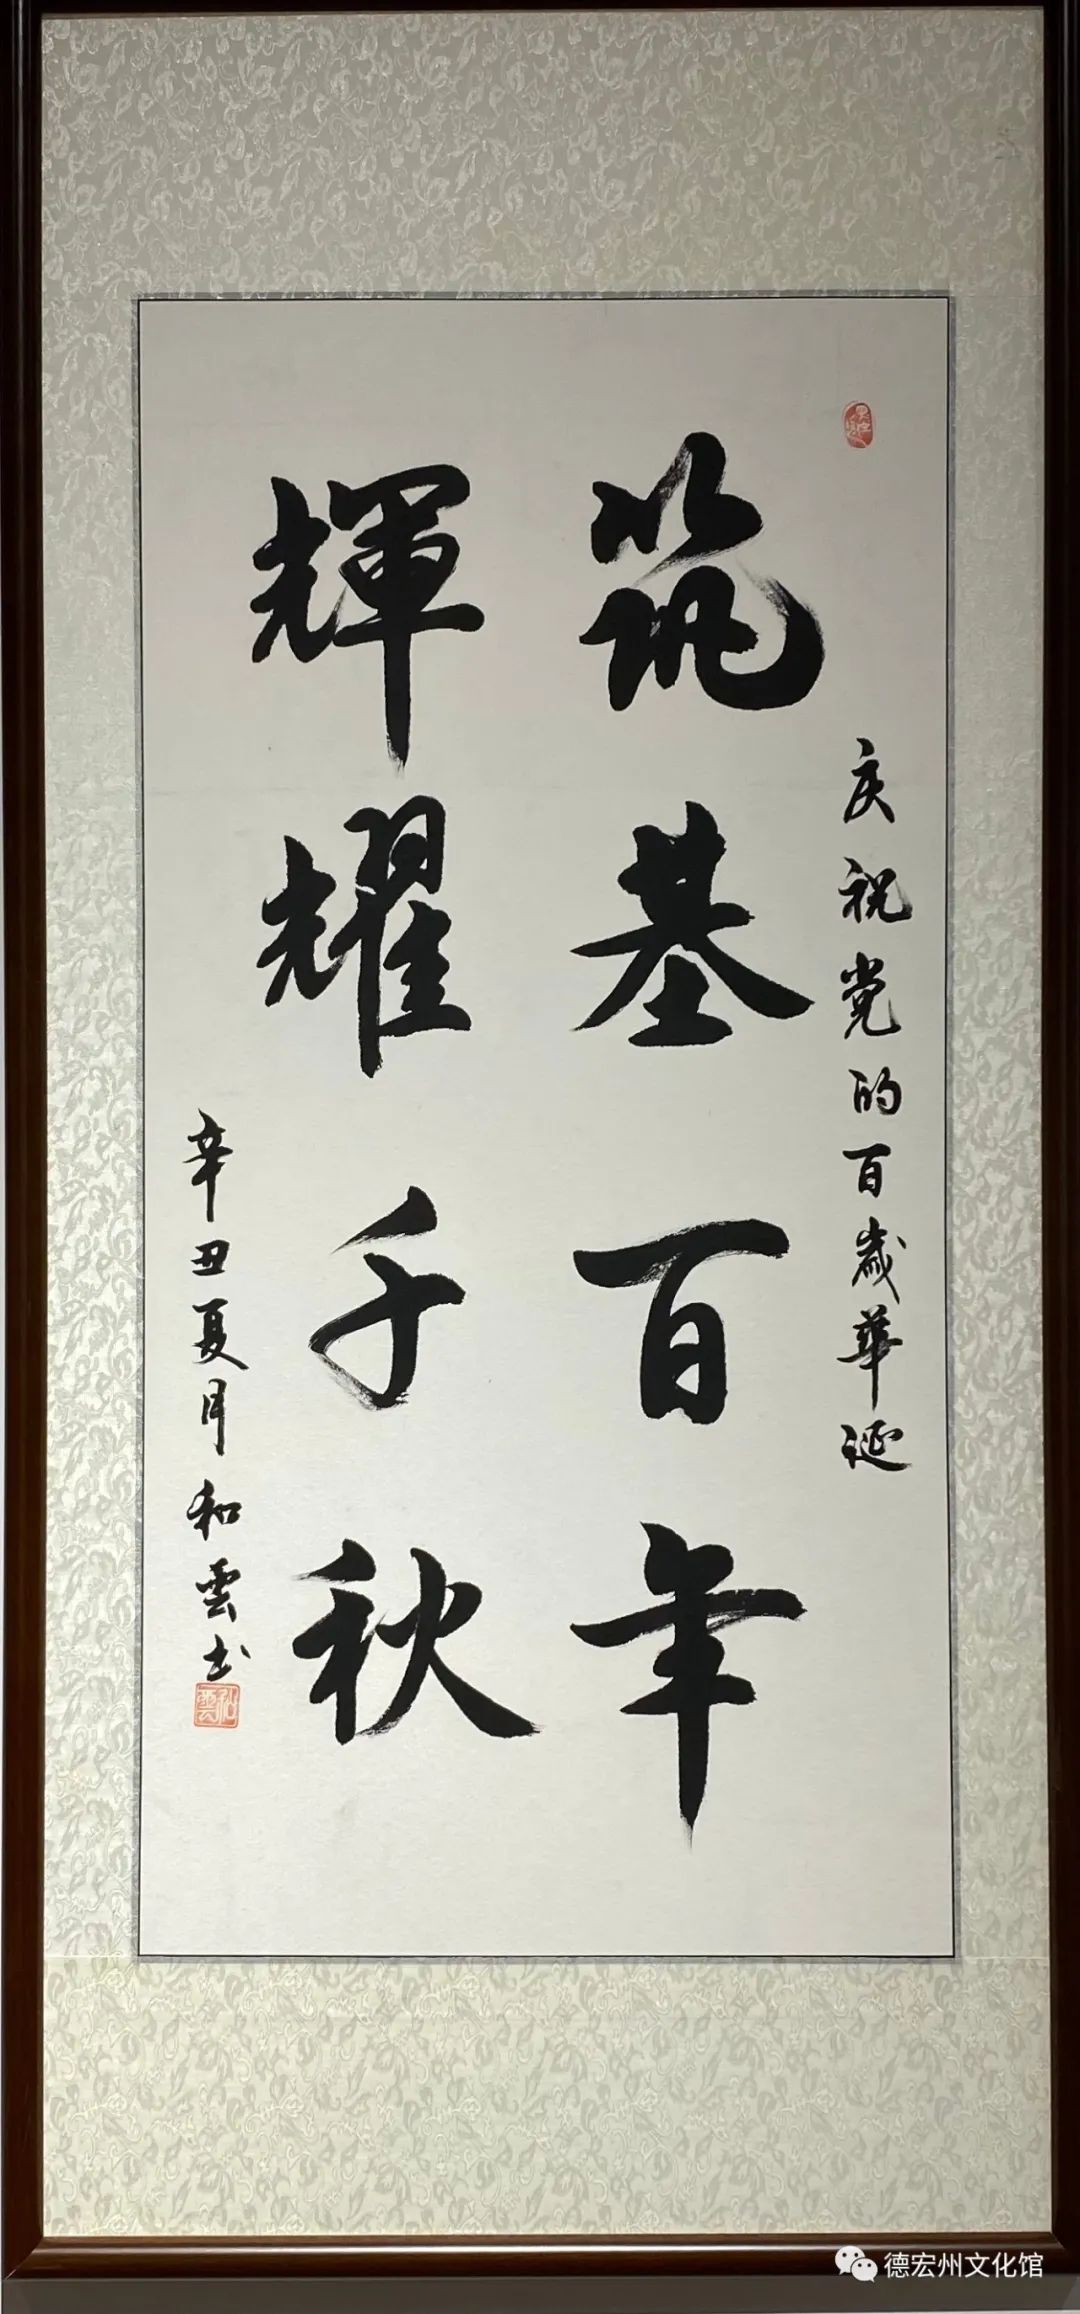 庆祝党的百歲華诞
筑基百年
輝耀千秋
辛丑夏月和雲书
和雲
德宏州文化馆